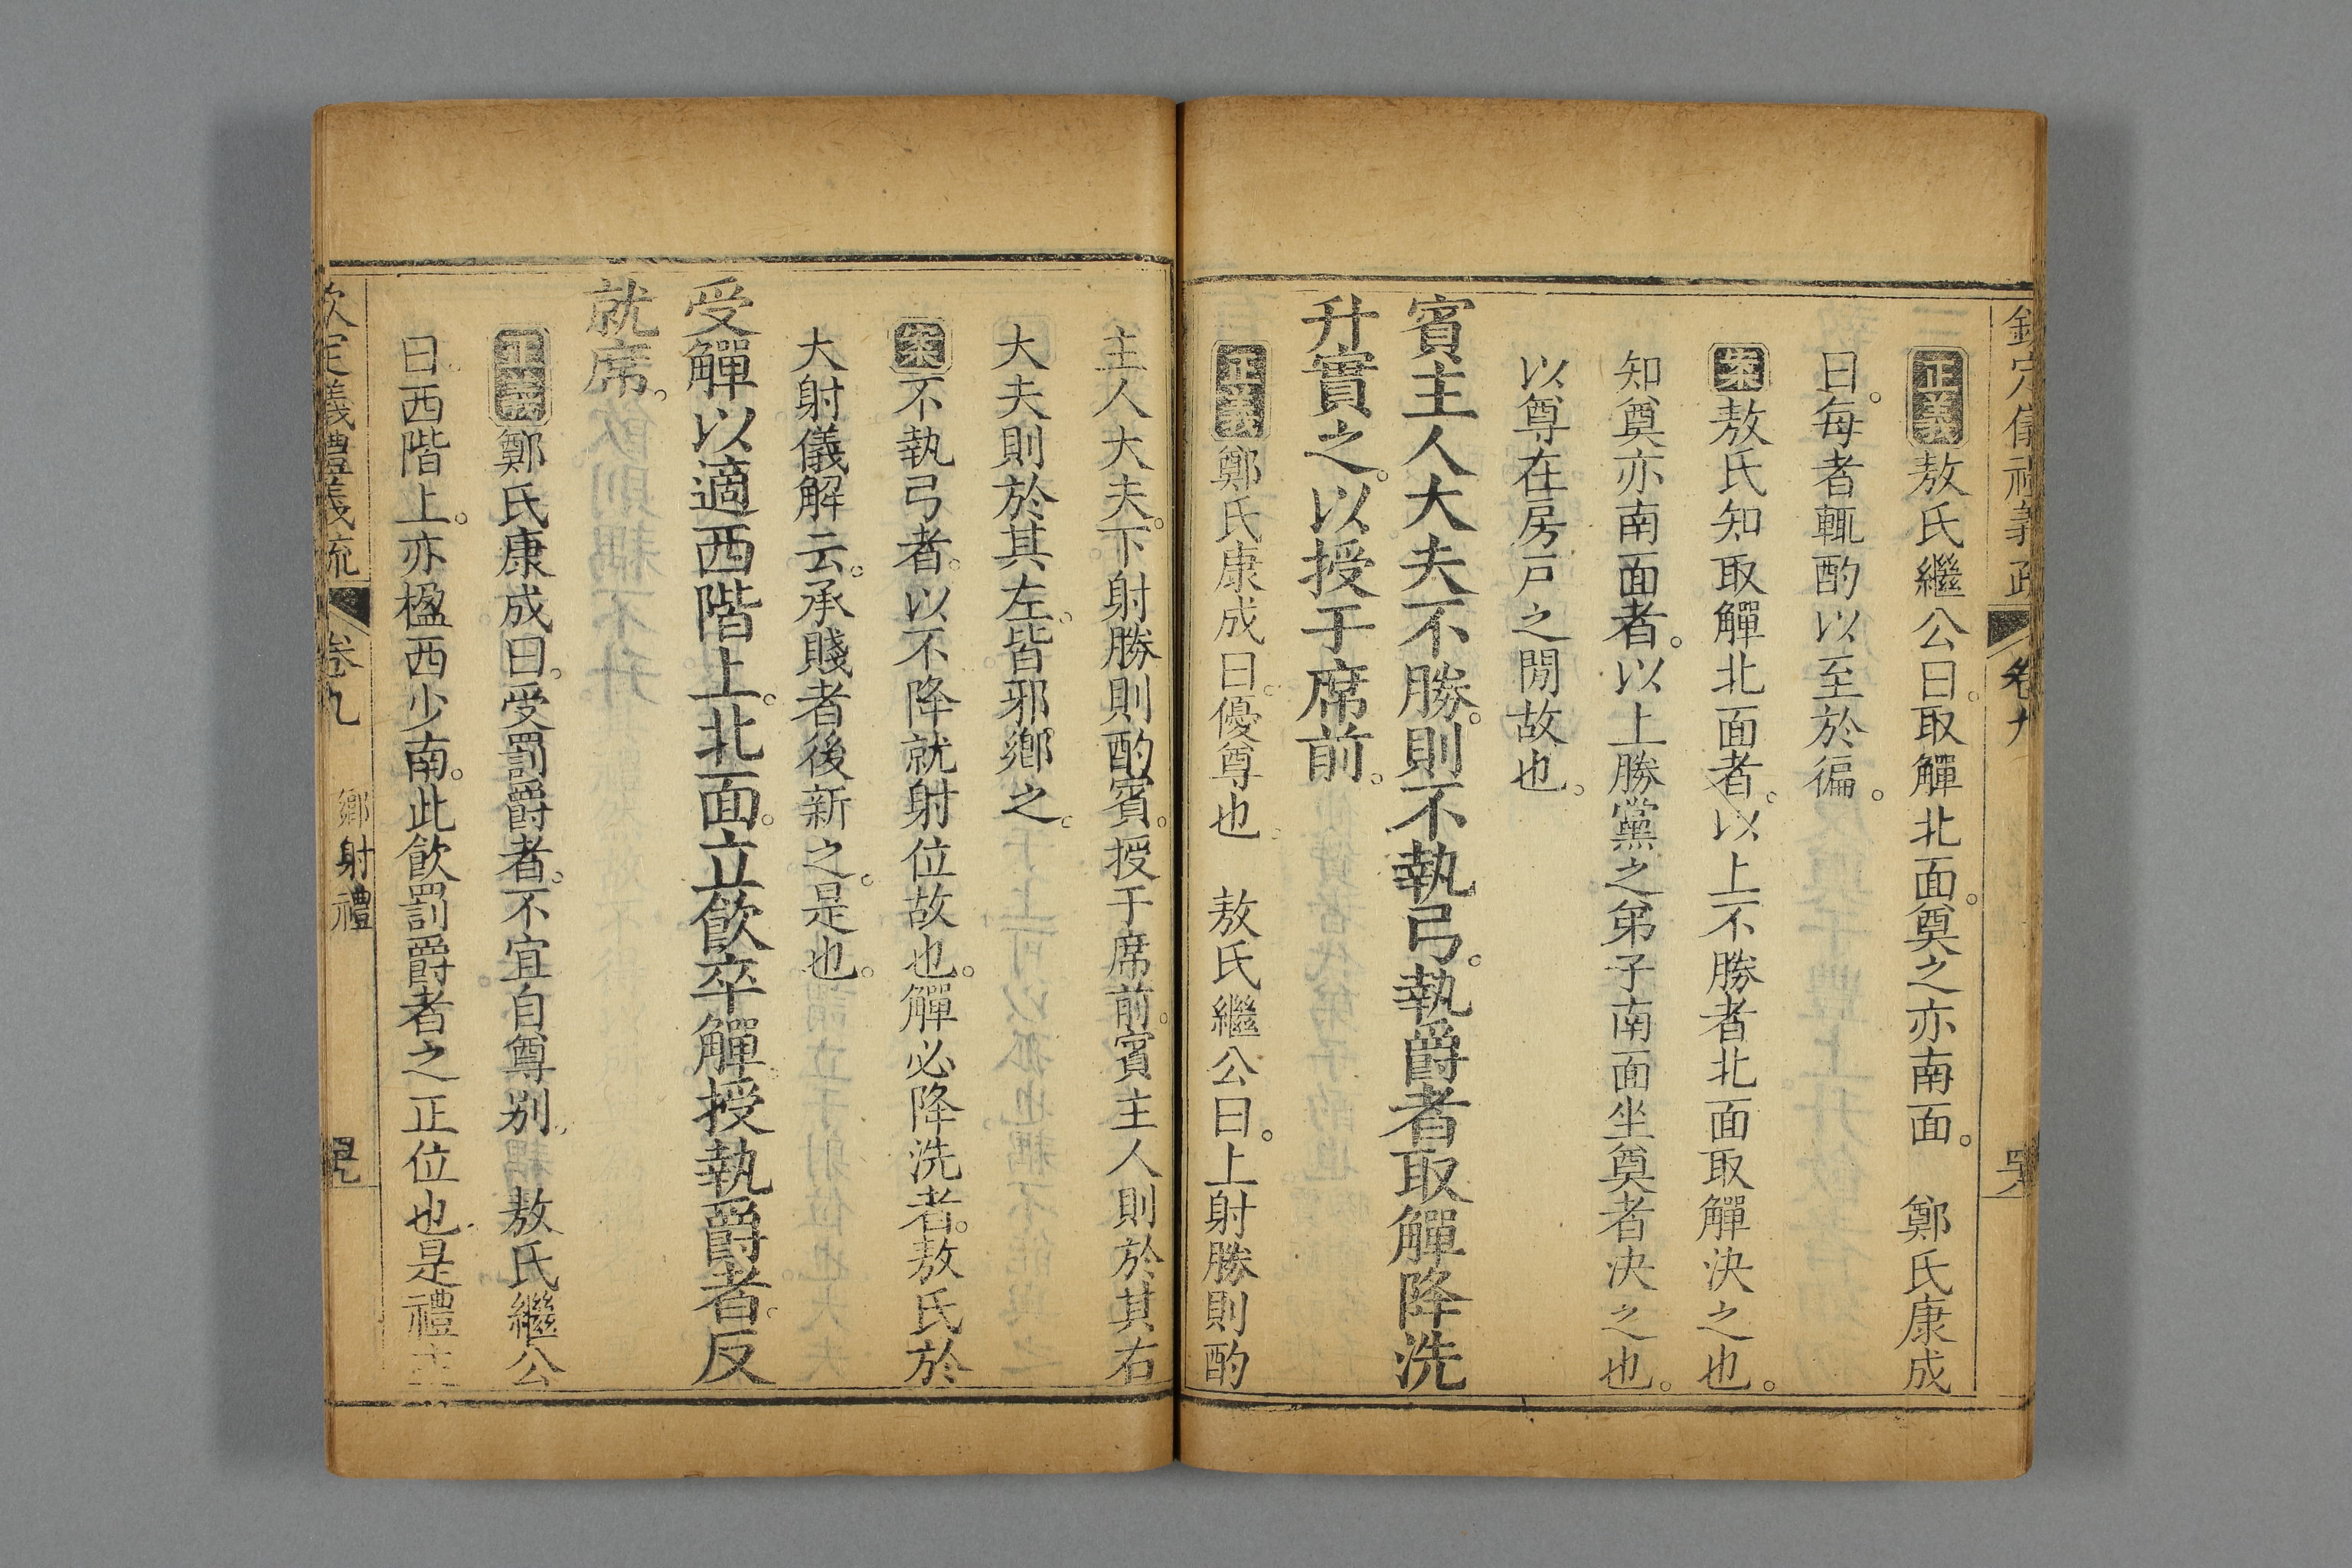 正義敖氏繼公曰。取觶北面。奠之亦南面。　鄭氏康成
曰。每者輒酌以至於徧。
案敖氏知取觶北面者。以上不勝者北面取觶決之也。
知奠亦南面者。以上勝黨之弟子南面坐奠者決之也。
以尊在房戸之閒故也。
賓主人大夫不勝。則不執弓。執爵者取觶降洗
升實之。以授于席前。
正義鄭氏康成曰。優尊也。　敖氏繼公曰。上射勝則酌
主人大夫。下射勝則酌賓。授于席前。賓主人則於其右
大夫則於其左。皆邪鄉之。
案不執弓者。以不降就射位故也。觶必降洗者。敖氏於
大射儀解云。承賤者後新之。是也。
受觶以適西階上。北面。立飲。卒觶。授執爵者。反
就席。
正義鄭氏康成曰。受罰爵者。不宜自尊別。　敖氏繼公
曰。西階上。亦楹西少南。此飲罰爵者之正位也。是禮主
欽定義禮義疏　卷九　鄉射禮